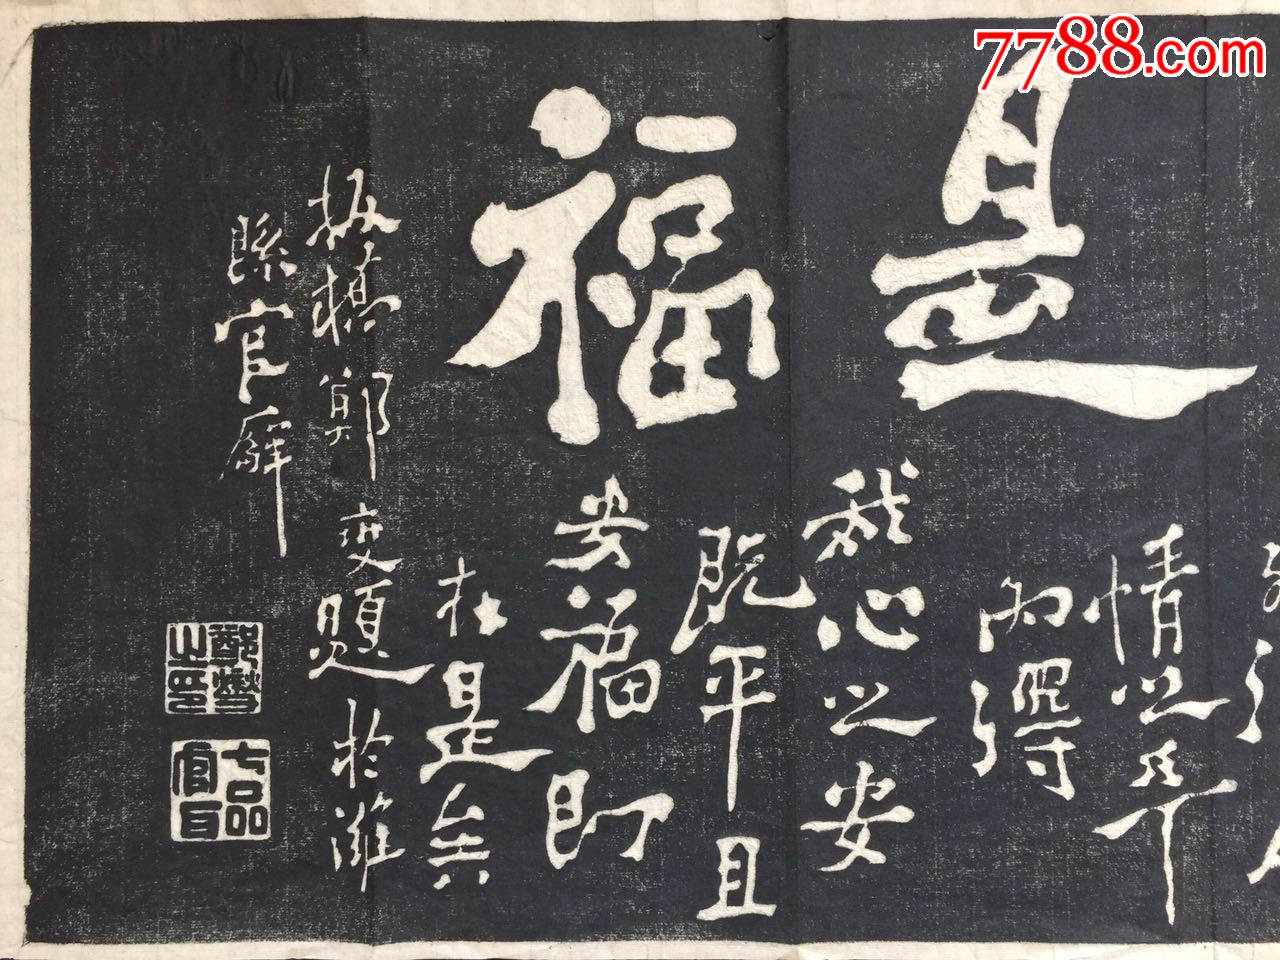 7788.com
是福
情之平
內得
我心之安
既平且
安福即
在是矣
板橋鄭燮題於濰
縣官廨
鄭燮之印
七品官耳